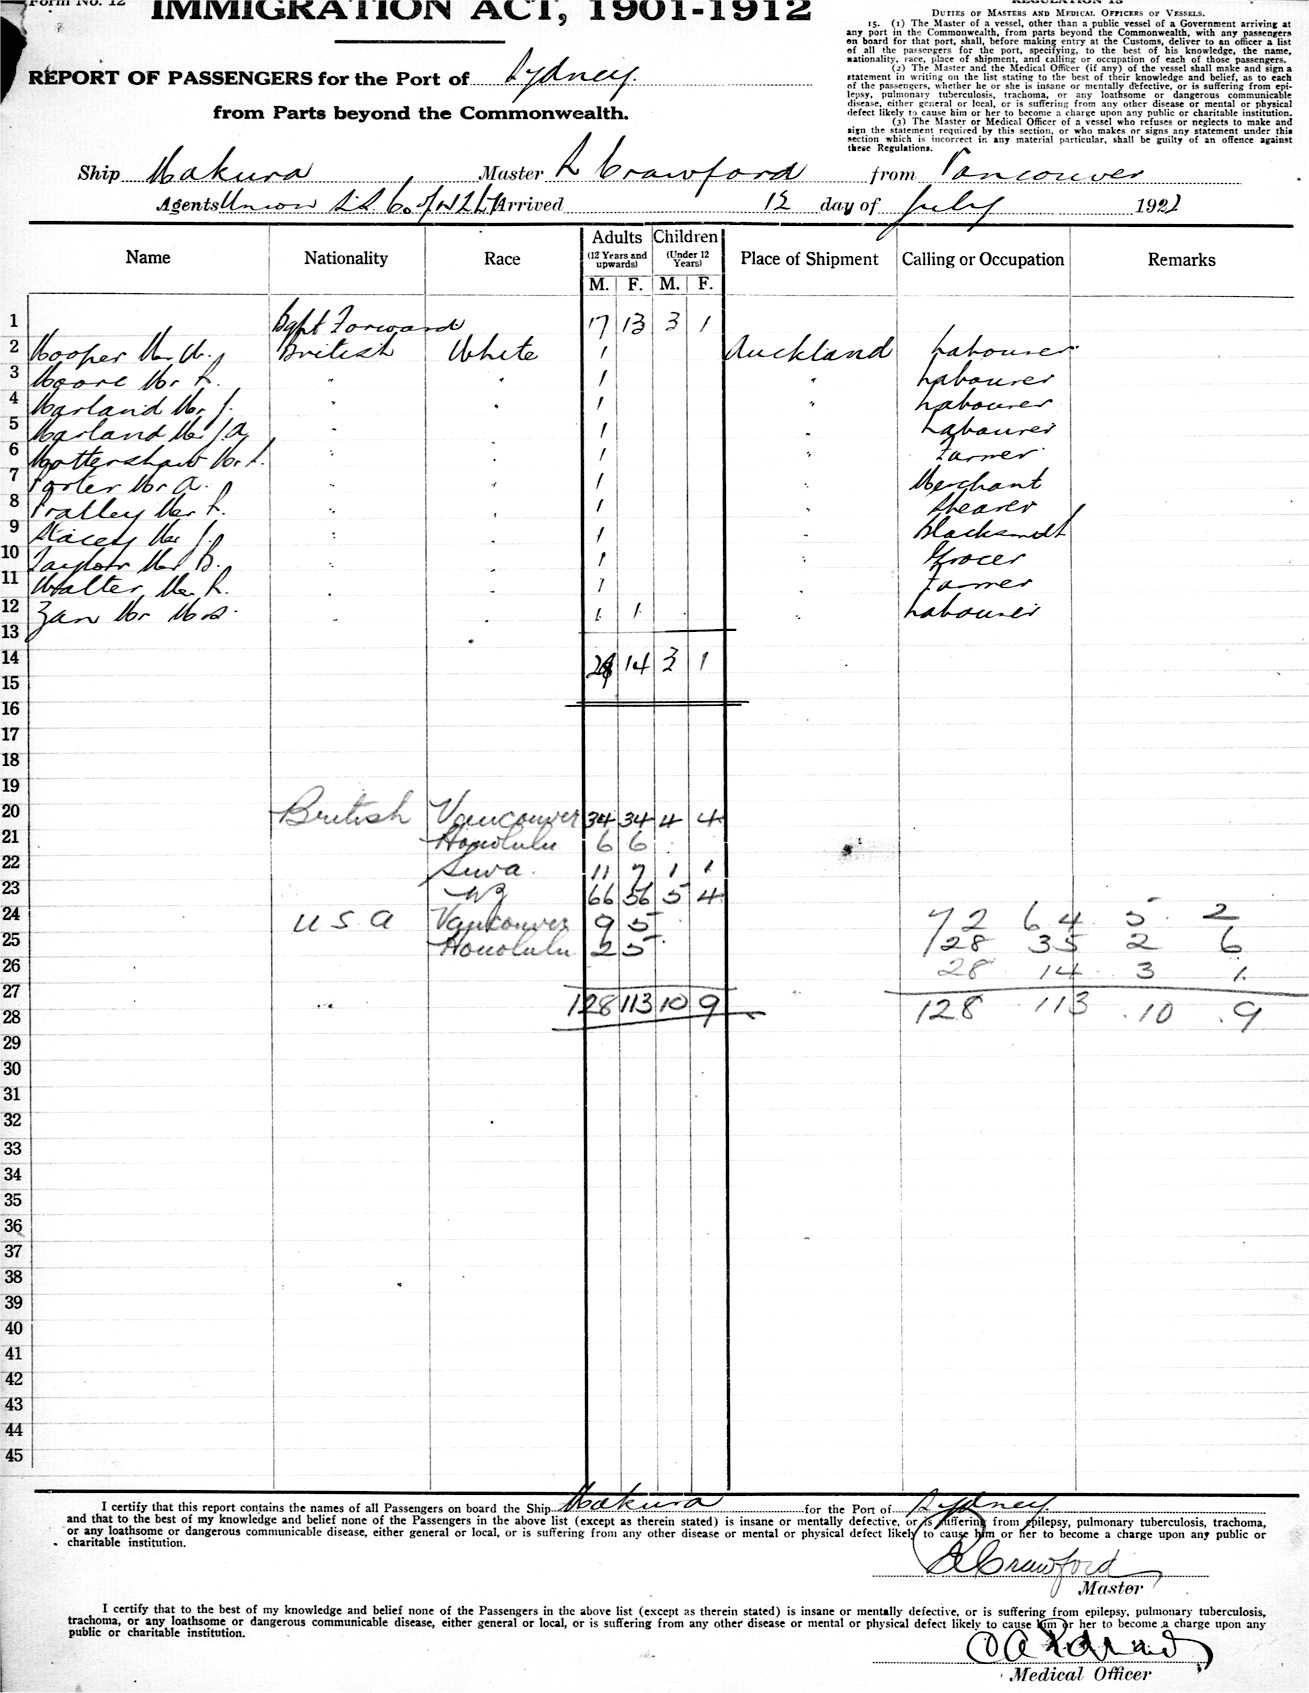 Form No. 12
IMMIGRATION ACT, 1901-1912
REPORT OF PASSENGERS for the Port of Sydney
from Parts beyond the Commonwealth.
REGULATION 15
DUTIES OF MASTERS AND MEDICAL OFFICERS OF VESSELS.
15. (1) The Master of a vessel, other than a public vessel of a Government arriving at
any port in the Commonwealth, from parts beyond the Commonwealth, with any passengers
on board for that port, shall, before making entry at the Customs, deliver to an officer a list
of all the passengers for the port, specifying, to the best of his knowledge, the name,
nationality, race, place of shipment, and calling or occupation of each of those passengers.
(2) The Master and the Medical Officer (if any) of the vessel shall make and sign a
statement in writing on the list stating to the best of their knowledge and belief, as to each
of the passengers, whether he or she is insane or mentally defective, or is suffering from epi-
lepsy, pulmonary tuberculosis, trachoma, or any loathsome or dangerous communicable
disease, either general or local, or is suffering from any other disease or mental or physical
defect likely to cause him or her to become a charge upon any public or charitable institution.
(3) The Master or Medical Officer of a vessel who refuses or neglects to make and
sign the statement required by this section, or who makes or signs any statement under this
section which is incorrect in any material particular, shall be guilty of an offence against
these Regulations.
Ship Makura Master R Crawford from Vancouver
Agents Union S.S. Co of NZ Ltd Arrived 12 day of July 1922
Name Nationality Race Adults (12 Years and upwards) Children (Under 12 Years) Place of Shipment Calling or Occupation Remarks
M. F. M. F.
1 Bght Forward 17 13 3 1
2 Hooper Mr W. British White 1 Auckland Labourer
3 Moore Mr L. " " 1 " Labourer
4 Marland Mr J. " " 1 " Labourer
5 Marland Mr J A " " 1 " Labourer
6 Mottershaw Mr L. " " 1 " Farmer
7 Porter Mr A. " " 1 " Merchant
8 Pratley Mr L. " " 1 " Shearer
9 Stacey Mr J. " " 1 " Blacksmith
10 Taylor Mr B. " " 1 " Grocer
11 Walter Mr L. " " 1 " Farmer
12 Zan Mr Mrs " " 1 1 " Labourer
13
14 28 14 3 1
15
16
17
18
19
20 British Vancouver 34 34 4 4
21 Honolulu 6 6
22 Suva 11 7 1 1
23 NZ 66 56 5 4
24 U S A Vancouver 9 5 72 64 5 2
25 Honolulu 2 5 28 35 2 6
26 28 14 3 1
27 128 113 10 9
28 128 113 10 9
29
30
31
32
33
34
35
36
37
38
39
40
41
42
43
44
45
I certify that this report contains the names of all Passengers on board the Ship Makura for the Port of Sydney
and that to the best of my knowledge and belief none of the Passengers in the above list (except as therein stated) is insane or mentally defective, or is suffering from epilepsy, pulmonary tuberculosis, trachoma,
or any loathsome or dangerous communicable disease, either general or local, or is suffering from any other disease or mental or physical defect likely to cause him or her to become a charge upon any public or
charitable institution.
R Crawford
Master
I certify that to the best of my knowledge and belief none of the Passengers in the above list (except as therein stated) is insane or mentally defective, or is suffering from epilepsy, pulmonary tuberculosis,
trachoma, or any loathsome or dangerous communicable disease, either general or local, or is suffering from any other disease or mental or physical defect likely to cause him or her to become a charge upon any
public or charitable institution.
Medical Officer